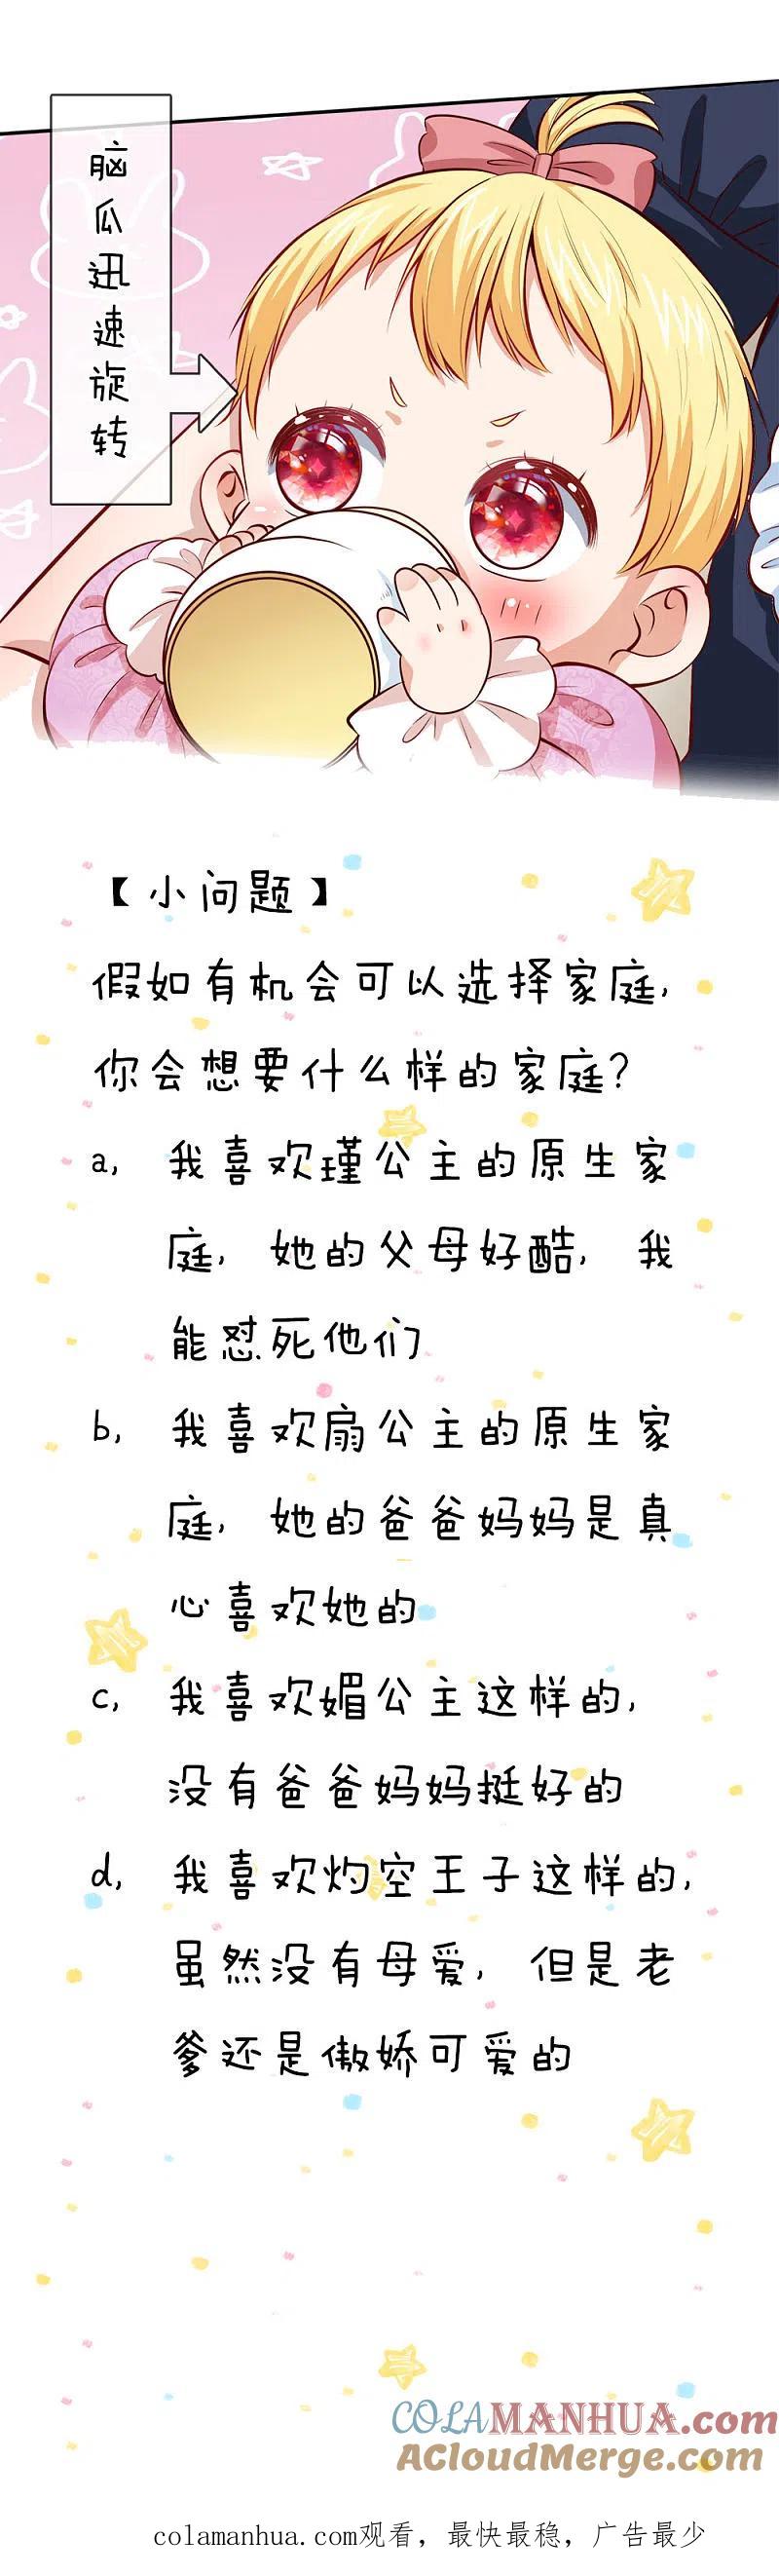 脑瓜迅速旋转
【小问题】
假如有机会可以选择家庭,
你会想要什么样的家庭?
a, 我喜欢瑾公主的原生家
庭, 她的父母好酷, 我
能怼死他们
b, 我喜欢扇公主的原生家
庭, 她的爸爸妈妈是真
心喜欢她的
c, 我喜欢媚公主这样的,
没有爸爸妈妈挺好的
d, 我喜欢灼空王子这样的,
虽然没有母爱, 但是老
爹还是傲娇可爱的
COLAMANHUA.com
ACloudMerge.com
colamanhua.com观看，最快最稳，广告最少